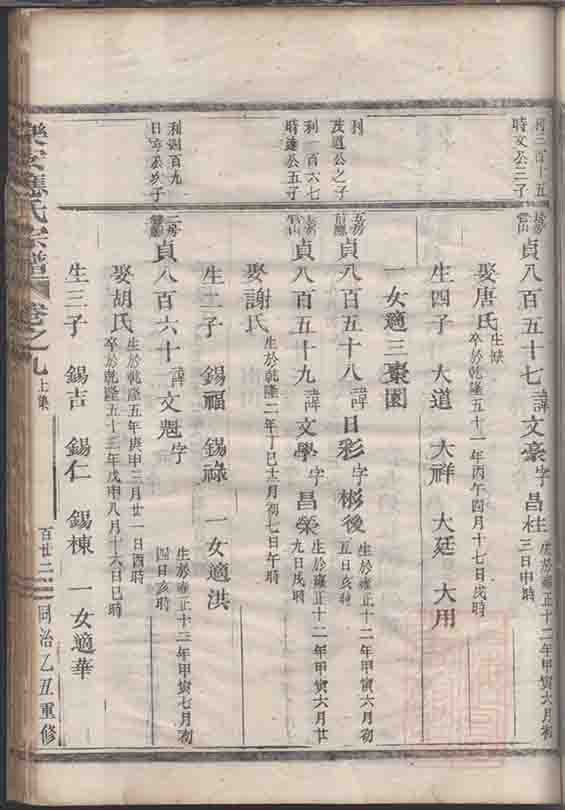 利三百十五
時文公三子
長房
雲山
貞八百五十七 諱文豪 字昌桂 生於雍正十二年甲寅六月初三日申時
娶唐氏 生缺 卒於乾隆五十一年丙午四月十七日戌時
生四子 大道 大祥 大廷 大用
一女適三棗園
利
茂道公之子
五房
貞八百五十八 諱日彩 字彬後 生於雍正十二年甲寅六月初五日亥時
利一百六七
時達公五子
長房
雲山
貞八百五十九 諱文學 字昌榮 生於雍正十二年甲寅六月廿九日戌時
娶謝氏 生於乾隆二年丁巳十二月初七日午時
生二子 錫福 錫祿 一女適洪
利四百九
日亨公次子
二房
貞八百六十 諱文魁 字 生於雍正十二年甲寅七月初四日亥時
娶胡氏 生於乾隆五年庚申三月廿一日酉時 卒於乾隆五十三年戊申八月十六日巳時
生三子 錫吉 錫仁 錫棟 一女適華
樂安應氏宗譜 卷之九 上集 百廿二 同治乙丑重修